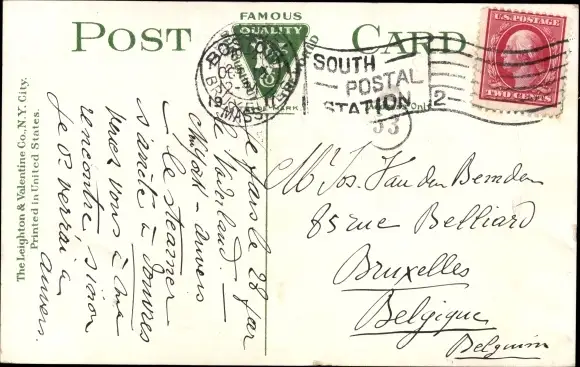 POST CARD
FAMOUS
QUALITY
BOSTON
MASS.
SOUTH
POSTAL
STATION
2
33
U.S. POSTAGE
TWO CENTS
The Leighton & Valentine Co., N.Y. City.
Printed in United States.
je pars le 28 par
le Vaderland. —
New York - Anvers
le steamer
s'arrête à Douvres
venez vous à ma
rencontre, sinon
je vs verrai à
Anvers.
Mr Jos. Van den Bemden
85 rue Belliard
Bruxelles
Belgique
Belgium